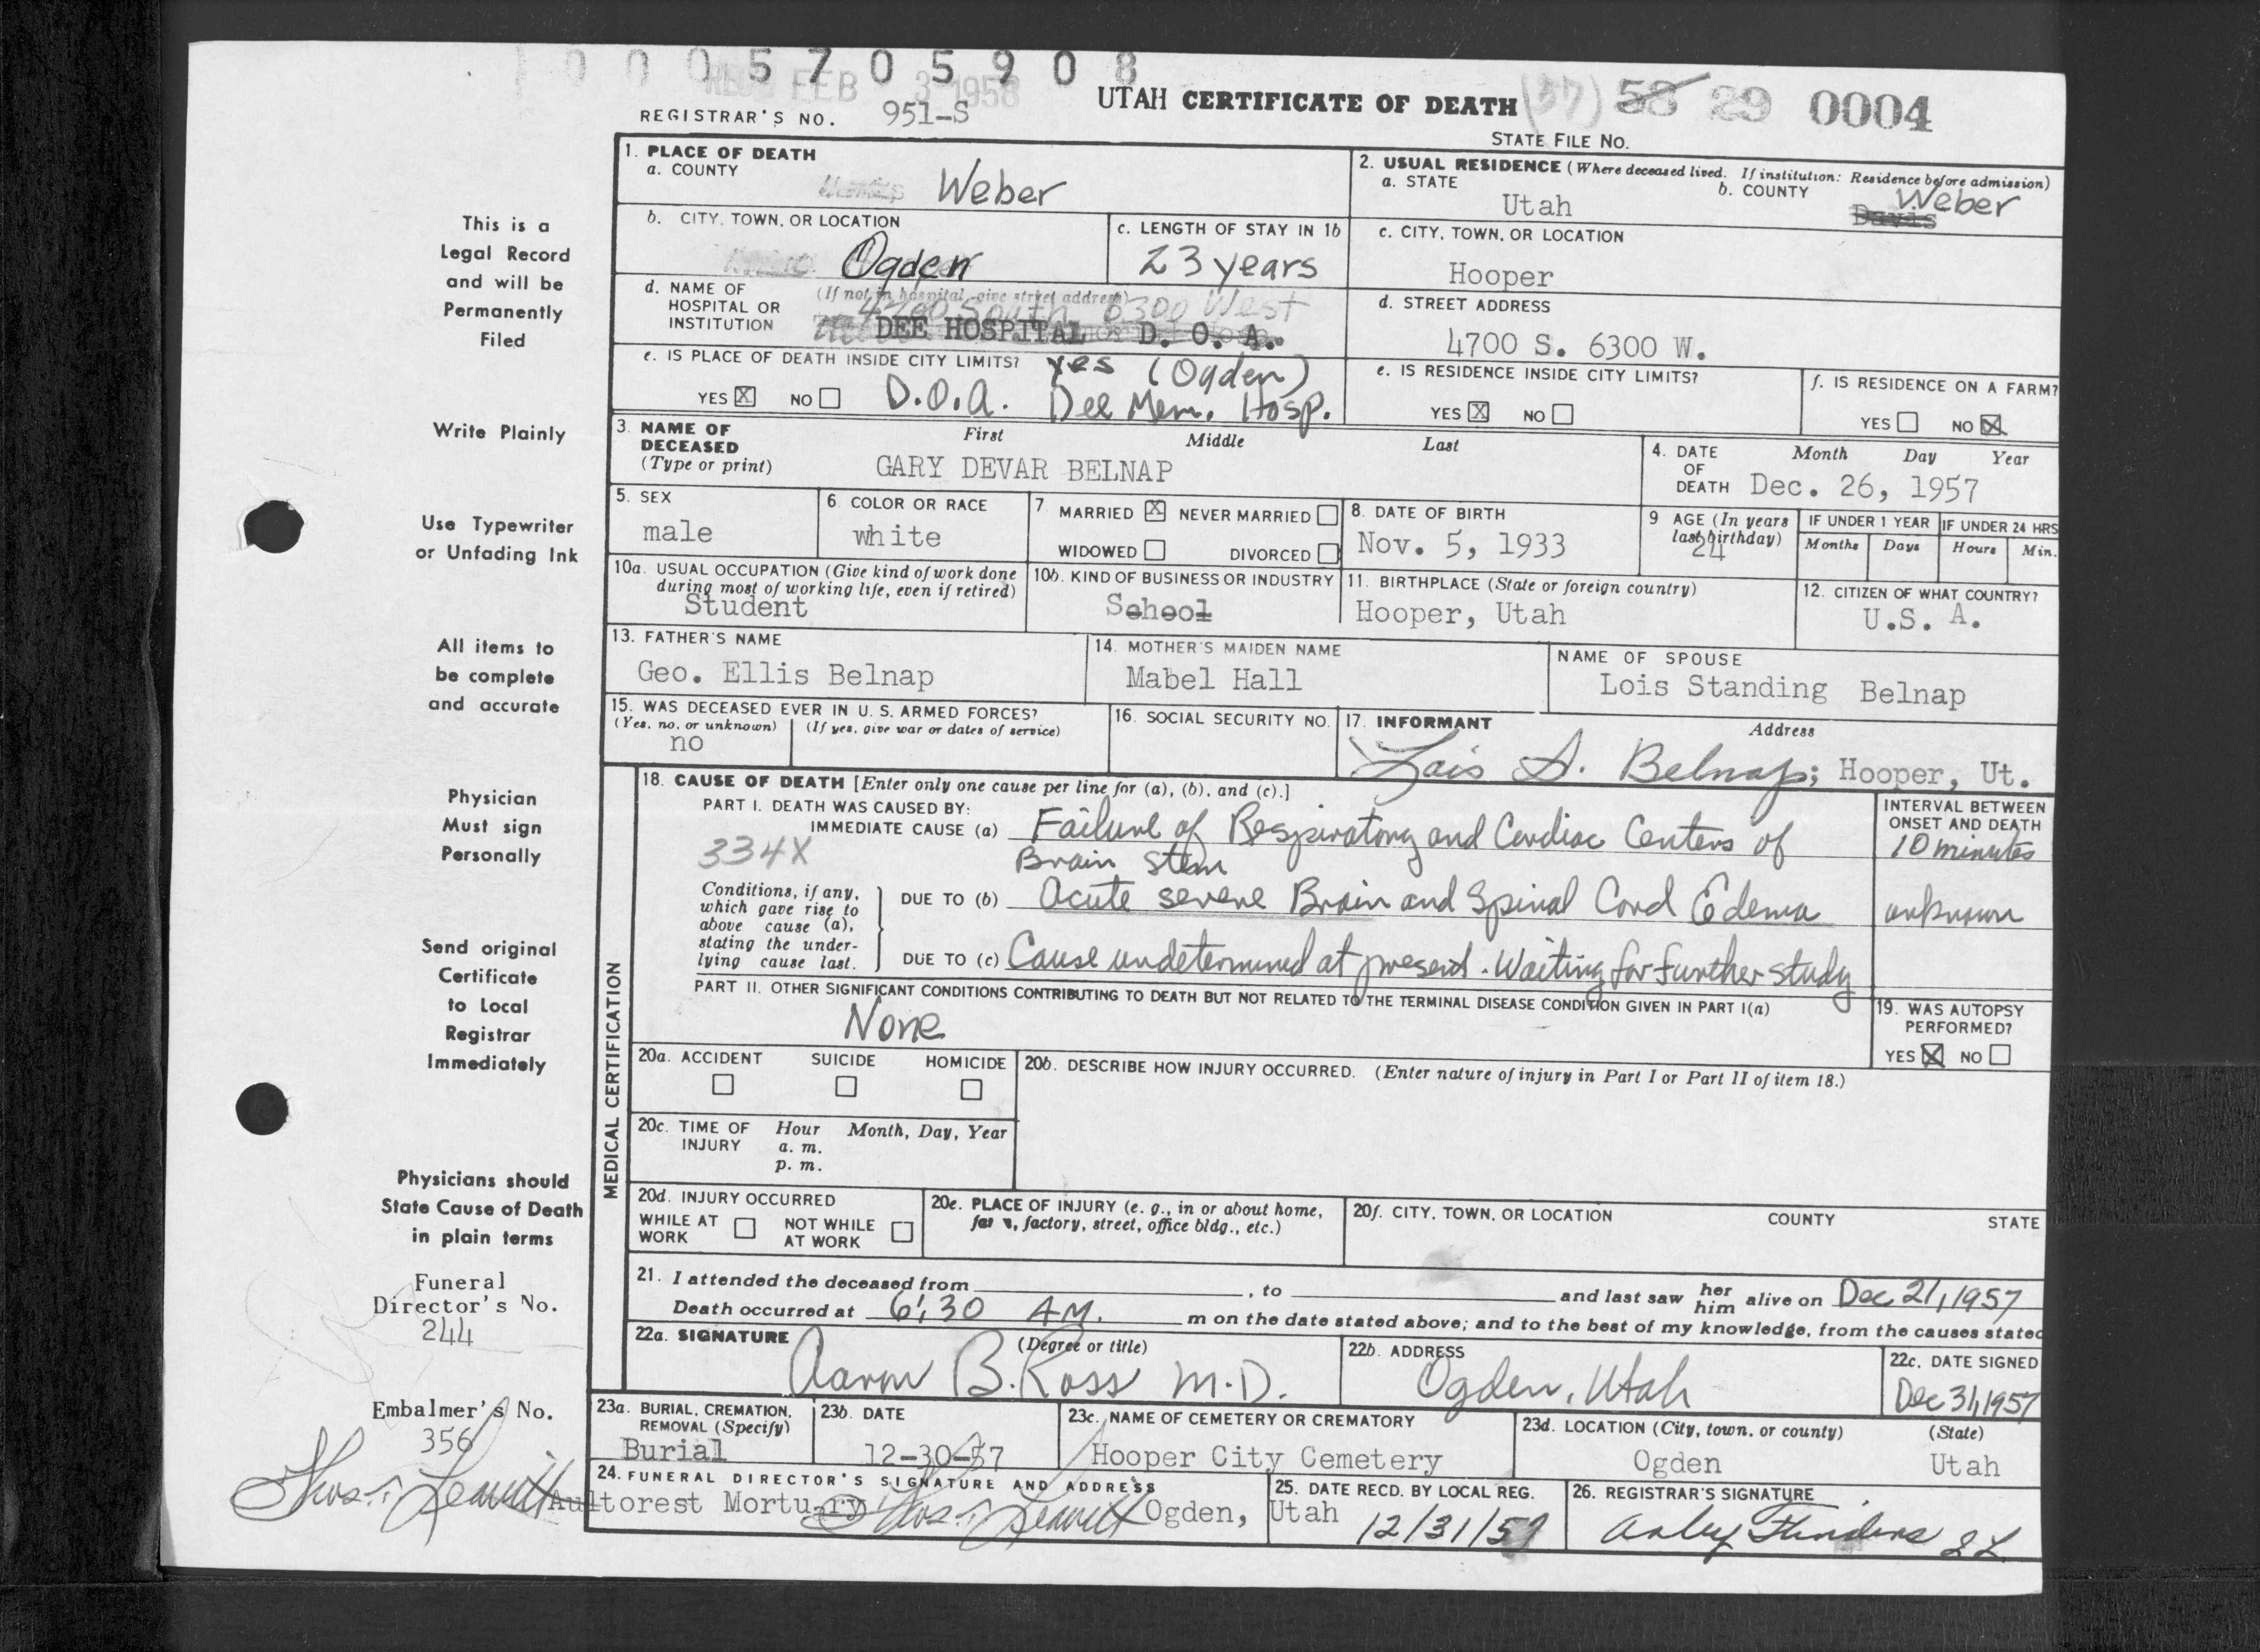 0 0 0 5 7 0 5 9 0 8
REC'D FEB 3 1958
REGISTRAR'S NO. 951-S
UTAH CERTIFICATE OF DEATH (57) 58 29 0004
STATE FILE NO.
1. PLACE OF DEATH
a. COUNTY
Weber
2. USUAL RESIDENCE (Where deceased lived. If institution: Residence before admission)
a. STATE
Utah
b. COUNTY
Weber
Davis
b. CITY, TOWN, OR LOCATION
Ogden
c. LENGTH OF STAY IN 1b
23 years
c. CITY, TOWN, OR LOCATION
Hooper
d. NAME OF HOSPITAL OR INSTITUTION
(If not in hospital, give street address)
4700 South 6300 West
DEE HOSPITAL D. O. A.
d. STREET ADDRESS
4700 S. 6300 W.
e. IS PLACE OF DEATH INSIDE CITY LIMITS? yes (Ogden)
YES X NO D.O.A. Dee Mem. Hosp.
e. IS RESIDENCE INSIDE CITY LIMITS?
YES X NO
f. IS RESIDENCE ON A FARM?
YES NO X
3. NAME OF DECEASED
(Type or print)
First Middle Last
GARY DEVAR BELNAP
4. DATE OF DEATH
Month Day Year
Dec. 26, 1957
5. SEX
male
6. COLOR OR RACE
white
7 MARRIED X NEVER MARRIED
WIDOWED DIVORCED
8. DATE OF BIRTH
Nov. 5, 1933
9 AGE (In years last birthday)
24
IF UNDER 1 YEAR
Months Days
IF UNDER 24 HRS
Hours Min.
10a. USUAL OCCUPATION (Give kind of work done during most of working life, even if retired)
Student
10b. KIND OF BUSINESS OR INDUSTRY
School
11. BIRTHPLACE (State or foreign country)
Hooper, Utah
12. CITIZEN OF WHAT COUNTRY?
U.S. A.
13. FATHER'S NAME
Geo. Ellis Belnap
14. MOTHER'S MAIDEN NAME
Mabel Hall
NAME OF SPOUSE
Lois Standing Belnap
15. WAS DECEASED EVER IN U. S. ARMED FORCES?
(Yes, no, or unknown) (If yes, give war or dates of service)
no
16. SOCIAL SECURITY NO.
17. INFORMANT Address
Lois S. Belnap; Hooper, Ut.
MEDICAL CERTIFICATION
18. CAUSE OF DEATH [Enter only one cause per line for (a), (b), and (c).]
PART I. DEATH WAS CAUSED BY:
IMMEDIATE CAUSE (a) Failure of Respiratory and Cardiac Centers of
Brain Stem
334X
INTERVAL BETWEEN ONSET AND DEATH
10 minutes
Conditions, if any, which gave rise to above cause (a), stating the underlying cause last.
DUE TO (b) Acute severe Brain and Spinal Cord Edema
unknown
DUE TO (c) Cause undetermined at present. Waiting for further study
PART II. OTHER SIGNIFICANT CONDITIONS CONTRIBUTING TO DEATH BUT NOT RELATED TO THE TERMINAL DISEASE CONDITION GIVEN IN PART I(a)
None
19. WAS AUTOPSY PERFORMED?
YES X NO
20a. ACCIDENT SUICIDE HOMICIDE
20b. DESCRIBE HOW INJURY OCCURRED. (Enter nature of injury in Part I or Part II of item 18.)
20c. TIME OF INJURY
Hour Month, Day, Year
a. m.
p. m.
20d. INJURY OCCURRED
WHILE AT WORK NOT WHILE AT WORK
20e. PLACE OF INJURY (e. g., in or about home, farm, factory, street, office bldg., etc.)
20f. CITY, TOWN, OR LOCATION COUNTY STATE
21. I attended the deceased from , to and last saw her him alive on Dec 21, 1957
Death occurred at 6:30 AM. m on the date stated above; and to the best of my knowledge, from the causes stated
22a. SIGNATURE (Degree or title)
Aaron B. Ross M.D.
22b. ADDRESS
Ogden, Utah
22c. DATE SIGNED
Dec 31, 1957
23a. BURIAL, CREMATION, REMOVAL (Specify)
Burial
23b. DATE
12-30-57
23c. NAME OF CEMETERY OR CREMATORY
Hooper City Cemetery
23d. LOCATION (City, town, or county) (State)
Ogden Utah
24. FUNERAL DIRECTOR'S SIGNATURE AND ADDRESS
Aultorest Mortuary Thos. Leavitt Ogden, Utah
25. DATE RECD. BY LOCAL REG.
12/31/57
26. REGISTRAR'S SIGNATURE
This is a
Legal Record
and will be
Permanently
Filed
Write Plainly
Use Typewriter
or Unfading Ink
All items to
be complete
and accurate
Physician
Must sign
Personally
Send original
Certificate
to Local
Registrar
Immediately
Physicians should
State Cause of Death
in plain terms
Funeral
Director's No.
244
Embalmer's No.
356
Thos. Leavitt